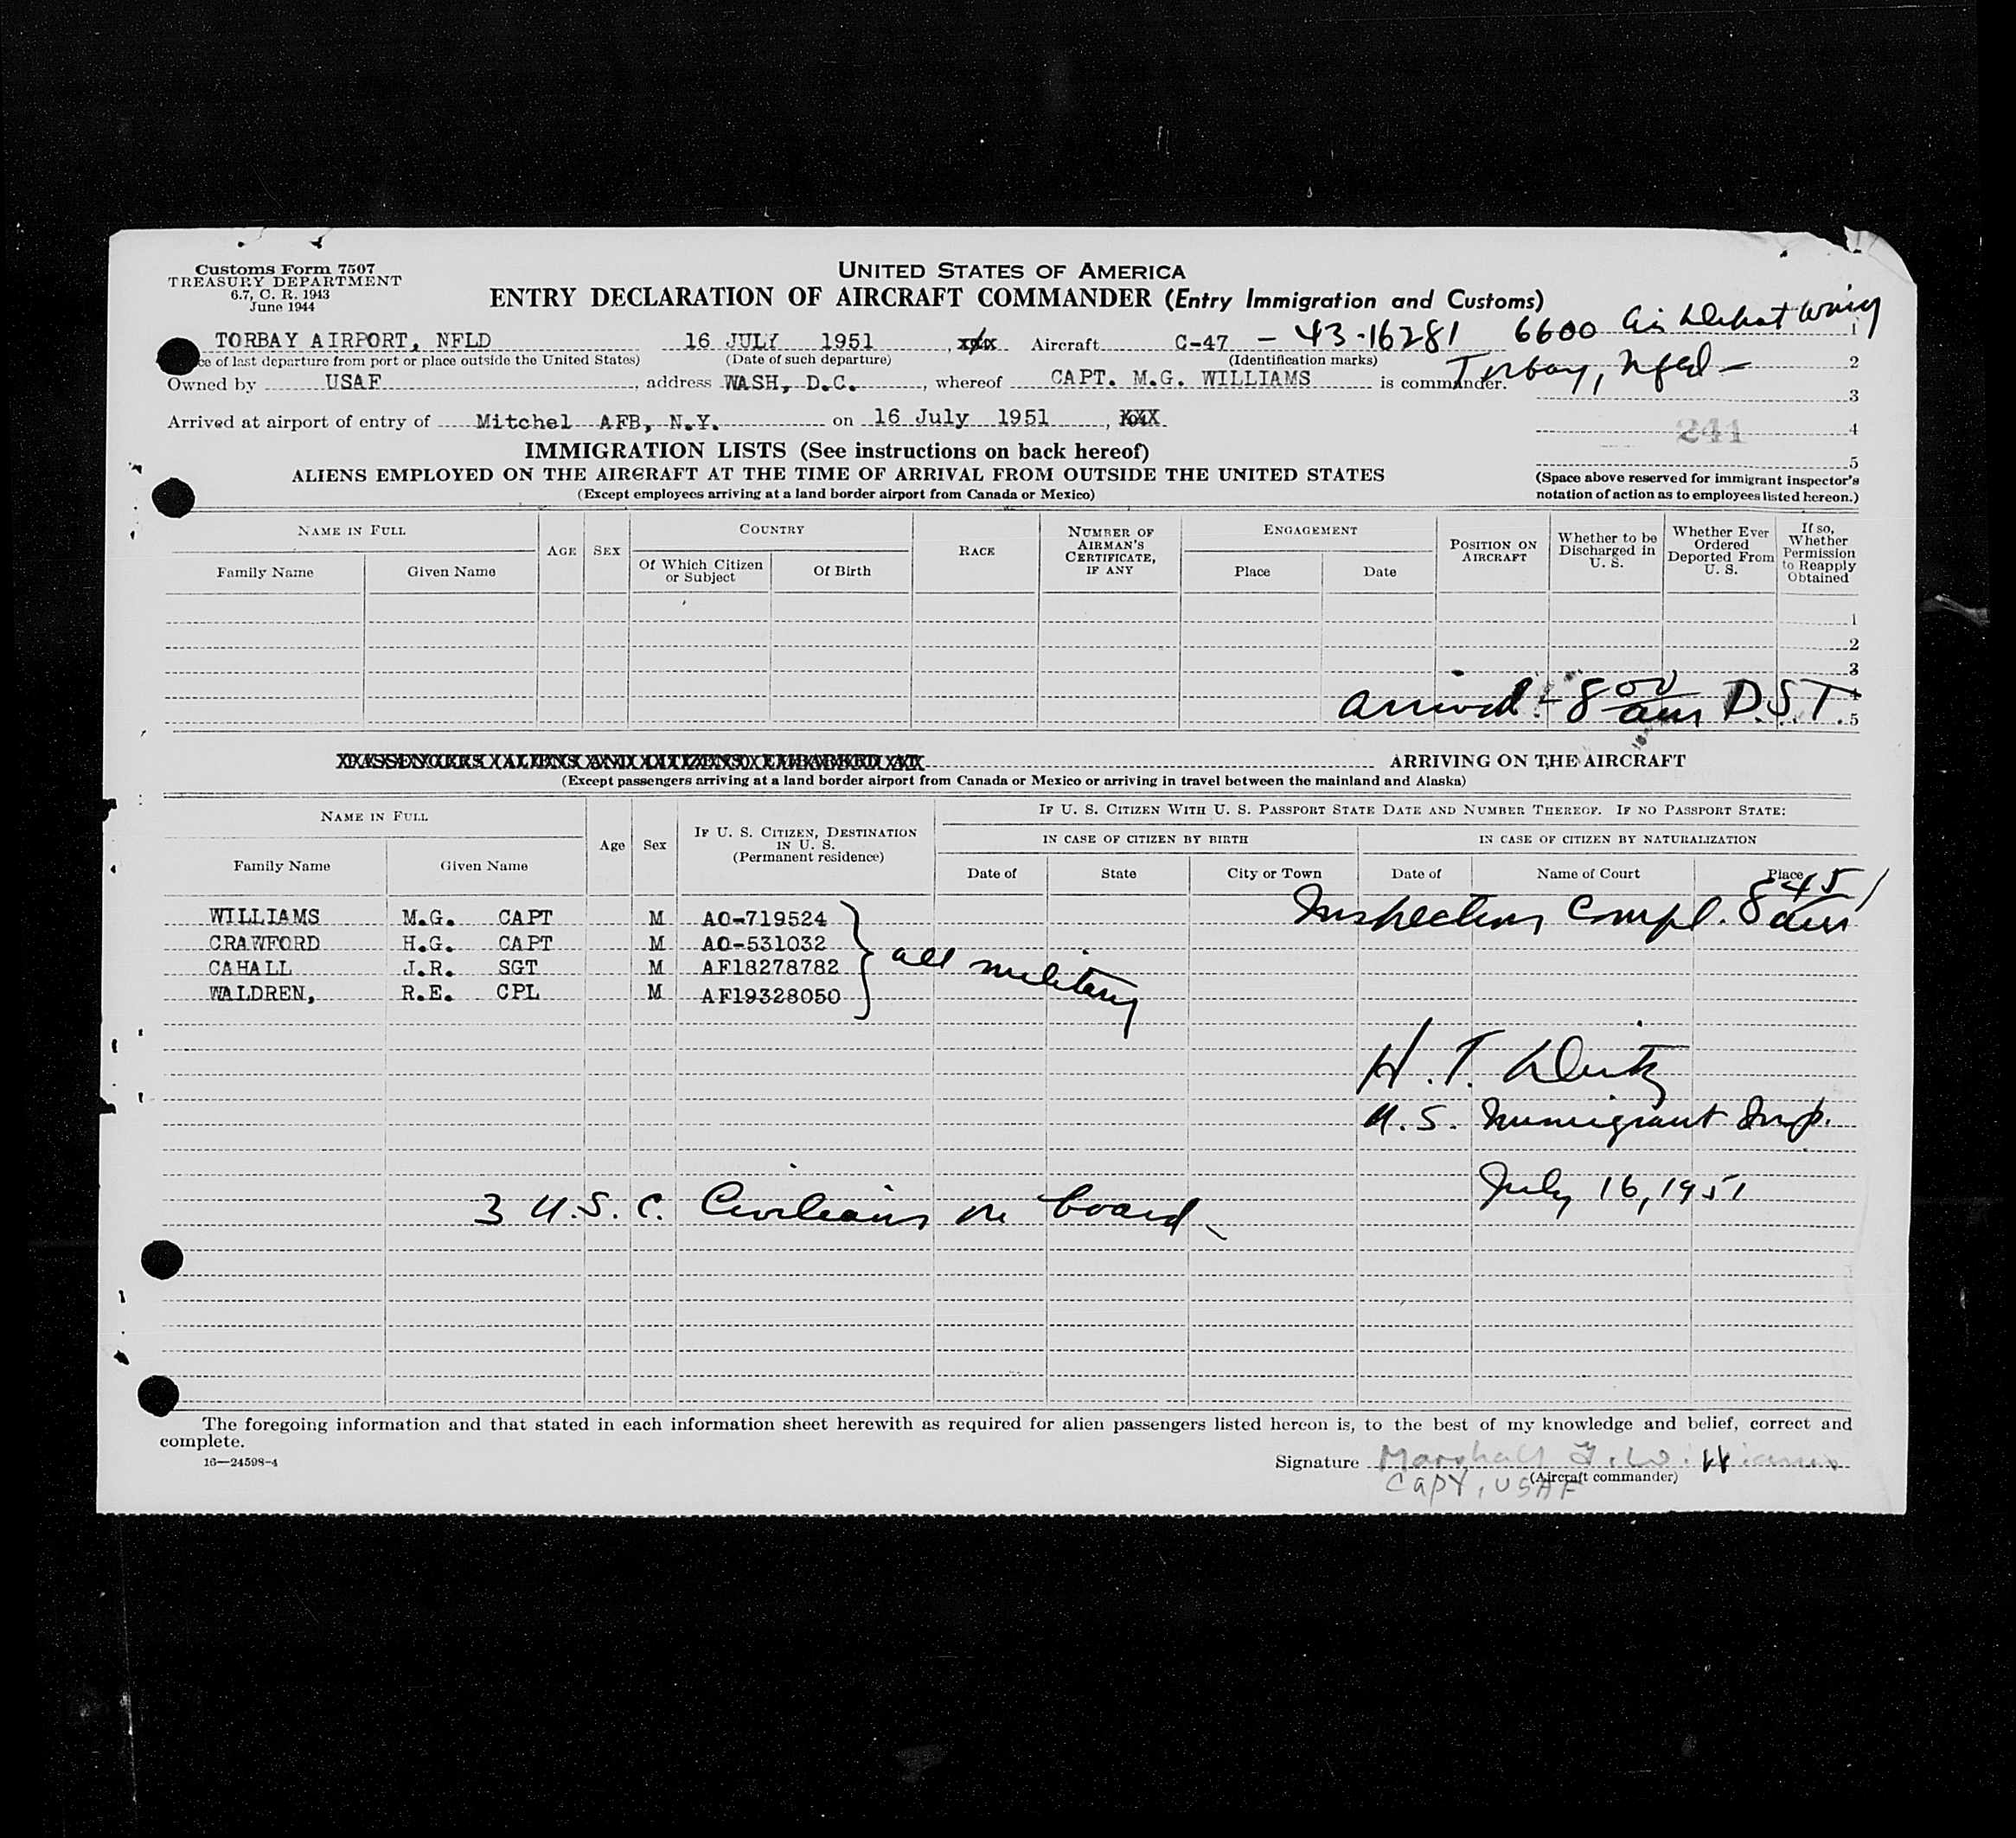 Customs Form 7507
TREASURY DEPARTMENT
6.7, C. R. 1943
June 1944
UNITED STATES OF AMERICA
ENTRY DECLARATION OF AIRCRAFT COMMANDER (Entry Immigration and Customs)
TORBAY AIRPORT, NFLD 16 JULY 1951, Aircraft C-47 - 43-16281 6600 Air Depot Wing 1
ce of last departure from port or place outside the United States) (Date of such departure) (Identification marks) Torbay, Nfld - 2
Owned by USAF, address WASH, D.C., whereof CAPT. M.G. WILLIAMS is commander.
3
Arrived at airport of entry of Mitchel AFB, N.Y. on 16 July 1951, XXX
241 4
IMMIGRATION LISTS (See instructions on back hereof)
5
ALIENS EMPLOYED ON THE AIRCRAFT AT THE TIME OF ARRIVAL FROM OUTSIDE THE UNITED STATES
(Space above reserved for immigrant inspector's
notation of action as to employees listed hereon.)
(Except employees arriving at a land border airport from Canada or Mexico)
NAME IN FULL
Family Name Given Name
AGE SEX
COUNTRY
Of Which Citizen or Subject Of Birth
RACE
NUMBER OF AIRMAN'S CERTIFICATE, IF ANY
ENGAGEMENT
Place Date
POSITION ON AIRCRAFT
Whether to be Discharged in U. S.
Whether Ever Ordered Deported From U. S.
If so, Whether Permission to Reapply Obtained
1
2
3
4
Arrived - 8 00 am D.S.T. 5
PASSENGERS (ALIENS AND CITIZENS) EMBARKED AT ARRIVING ON THE AIRCRAFT
(Except passengers arriving at a land border airport from Canada or Mexico or arriving in travel between the mainland and Alaska)
NAME IN FULL
Family Name Given Name
Age Sex
IF U. S. CITIZEN, DESTINATION IN U. S. (Permanent residence)
IF U. S. CITIZEN WITH U. S. PASSPORT STATE DATE AND NUMBER THEREOF. IF NO PASSPORT STATE:
IN CASE OF CITIZEN BY BIRTH IN CASE OF CITIZEN BY NATURALIZATION
Date of State City or Town Date of Name of Court Place
Inspection Compl. 8 45 am
WILLIAMS M.G. CAPT M AO-719524
CRAWFORD H.G. CAPT M AO-531032
CAHALL J.R. SGT M AF18278782
WALDREN, R.E. CPL M AF19328050
all military
H. T.
U.S. Immigrant Insp.
July 16, 1951
3 U.S.C. Civilians on board
The foregoing information and that stated in each information sheet herewith as required for alien passengers listed hereon is, to the best of my knowledge and belief, correct and
complete.
16—24598-4
Signature Marshall G. Williams
(Aircraft commander)
Capt, USAF